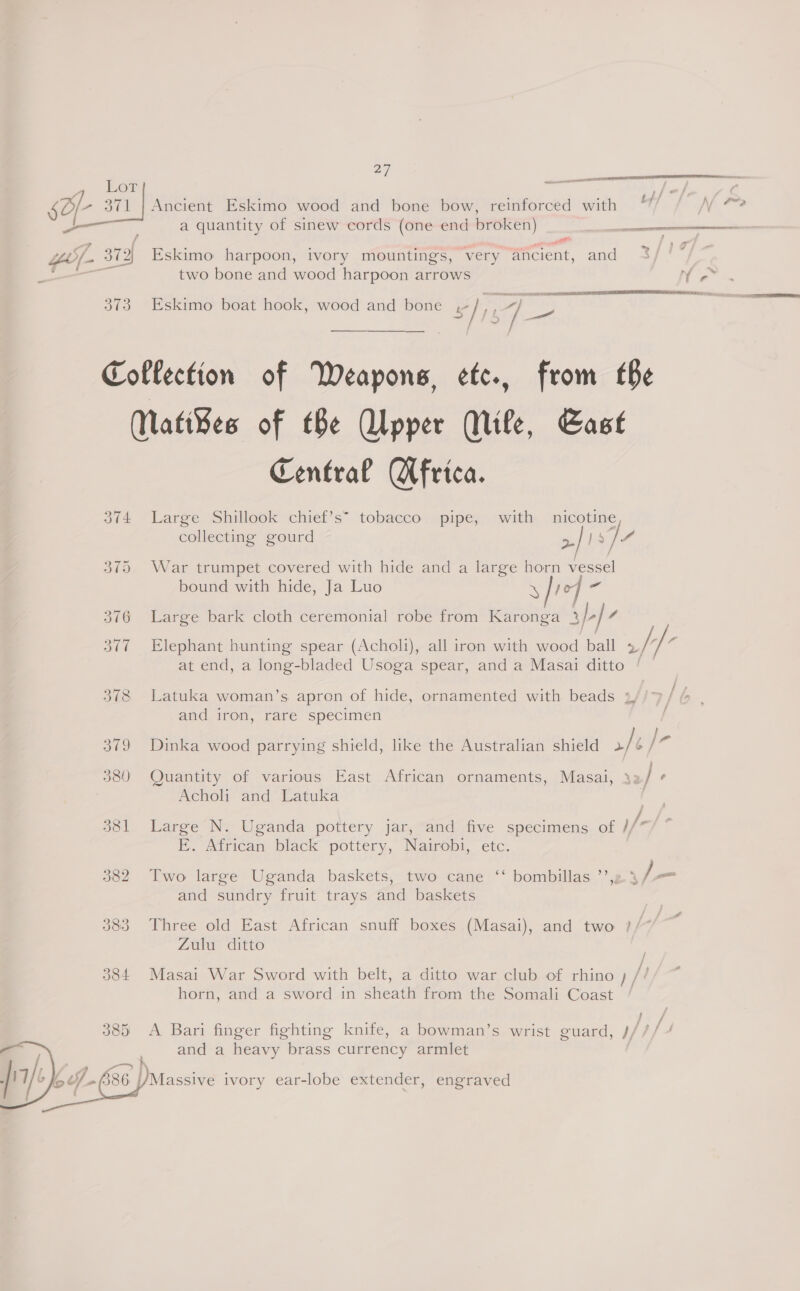 27
Lot
50/- 371 Ancient Eskimo wood and bone bow, reinforced with
a quantity of sinew cords (one end broken)
372 Eskimo harpoon, ivory mountings, very ancient, and
two bone and wood harpoon arrows
373 Eskimo boat hook, wood and bone 5/15/-
Collection of Weapons, etc., from the
Natives of the Upper Nile, East
Central Africa.
374 Large Shillook chief's* tobacco pipe, with nicotine
collecting gourd
375 War trumpet covered with hide and a large horn vessel
bound with hide, Ja Luo
376 Large bark cloth ceremonial robe from Karonga
377 Elephant hunting spear (Acholi), all iron with wood ball
at end, a long-bladed Usoga spear, and a Masai ditto
378 Latuka woman's apron of hide, ornamented with beads
and iron, rare specimen
379 Dinka wood parrying shield, like the Australian shield
380 Quantity of various East African ornaments, Masai,
Acholi and Latuka
381 Large N. Uganda pottery jar, and five specimens of
E. African black pottery, Nairobi, etc.
382 Two large Uganda baskets, two cane “ bombillas ”,
and sundry fruit trays and baskets
383 Three old East African snuff boxes (Masai), and two
Zulu ditto
384 Masai War Sword with belt, a ditto war club of rhino
horn, and a sword in sheath from the Somali Coast
385 A Bari finger fighting knife, a bowman's wrist guard,
and a heavy brass currency armlet
386 Massive ivory ear-lobe extender, engraved